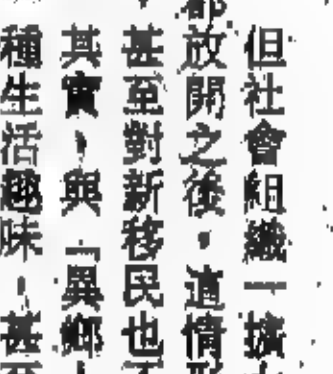 但社會組織一擴
都放開之後，這情形
甚至對新移民也
其實，與「異鄉
種生活趣味，甚至